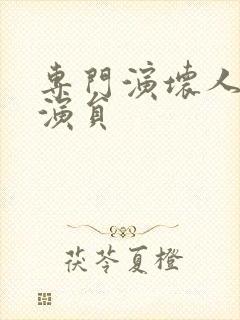 專門演壞人
演員
茯苓夏橙